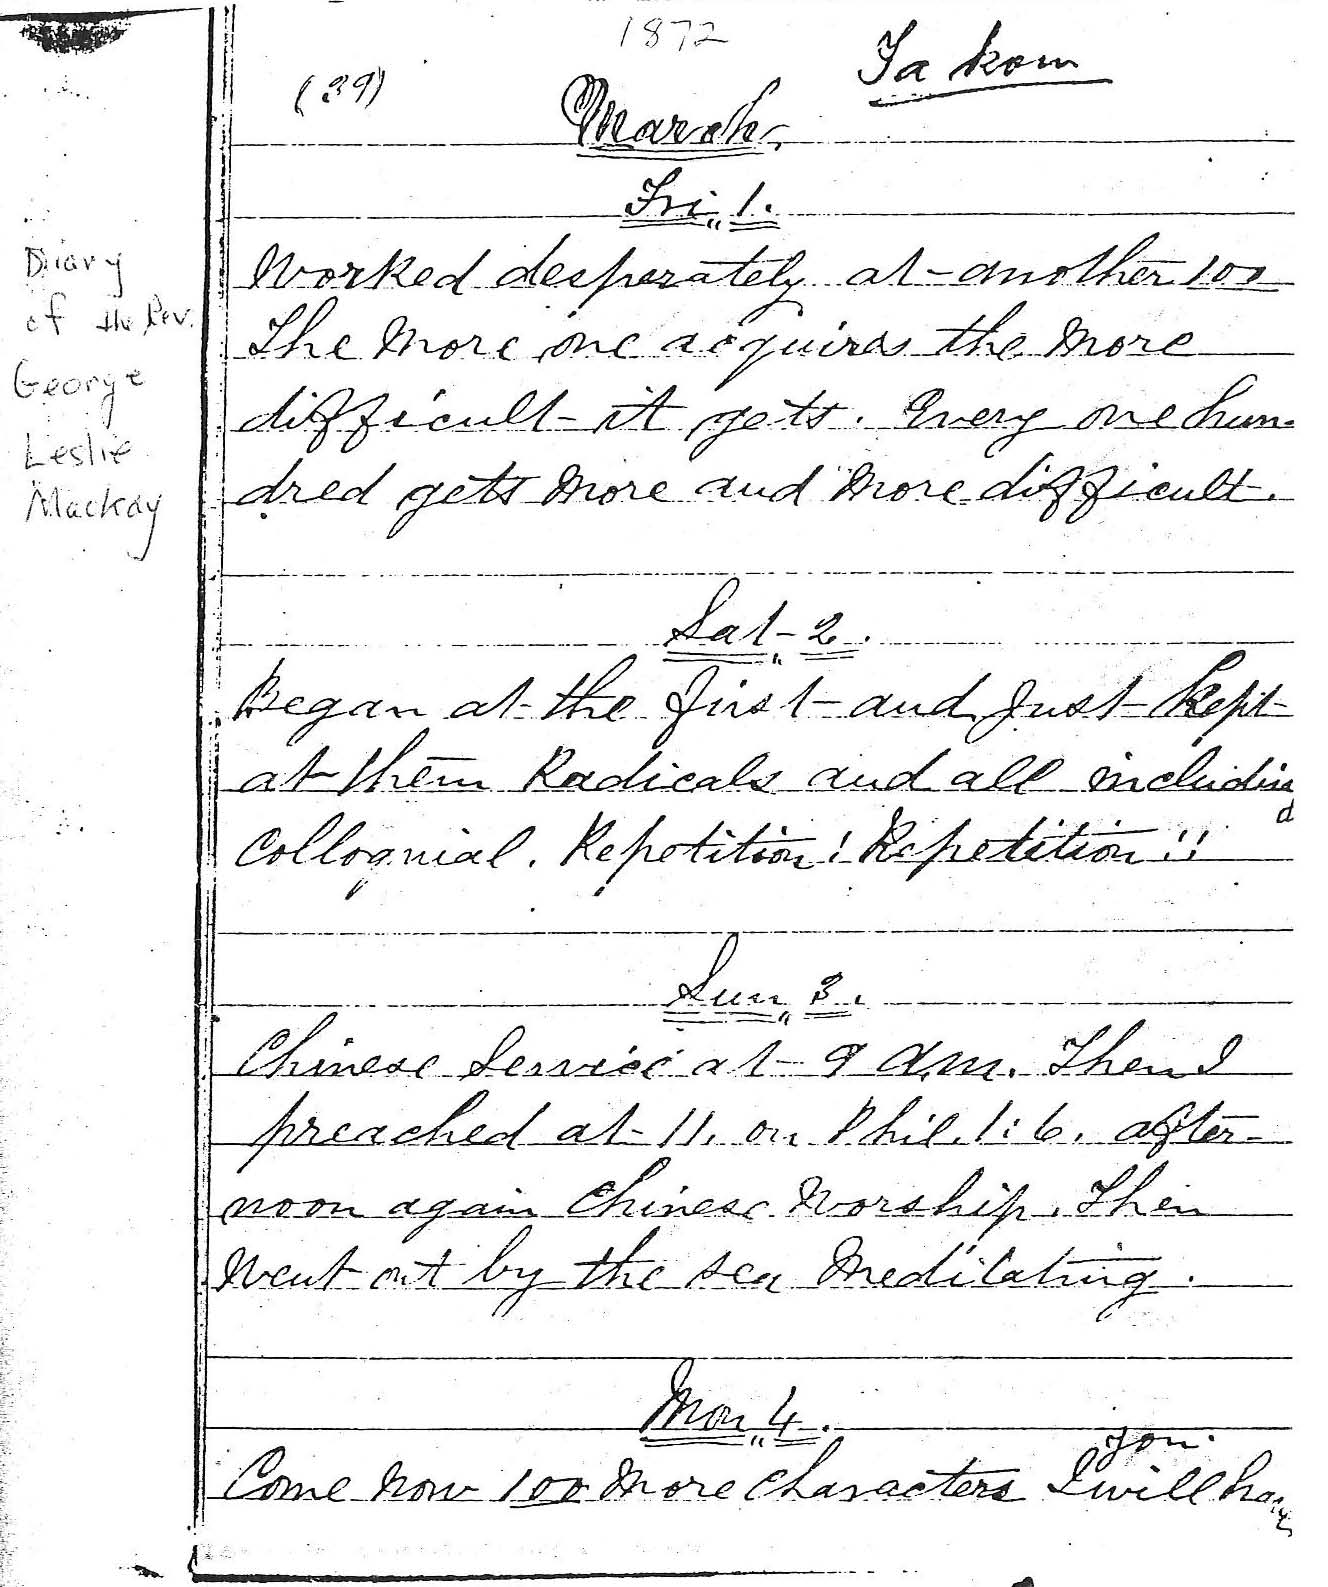 1872
Ta kow
(39)
March,
Fri, 1.
Worked desperately at another 100
The more one acquires the more
difficult it gets. Every one hun-
dred gets more and more difficult.
Sat, 2.
Began at the first and just kept
at them Radicals and all includin
g
Colloquial. Repetition! Repetition!!
Sun, 3.
Chinese Service at 9 a.m. Then I
preached at 11. on Phil. 1:6. after-
noon again Chinese Worship. Then
Went out by the sea Meditating.
Mon, 4.
you.
Come now 100 more characters I will have
Diary
of the Rev.
George
Leslie
Mackay